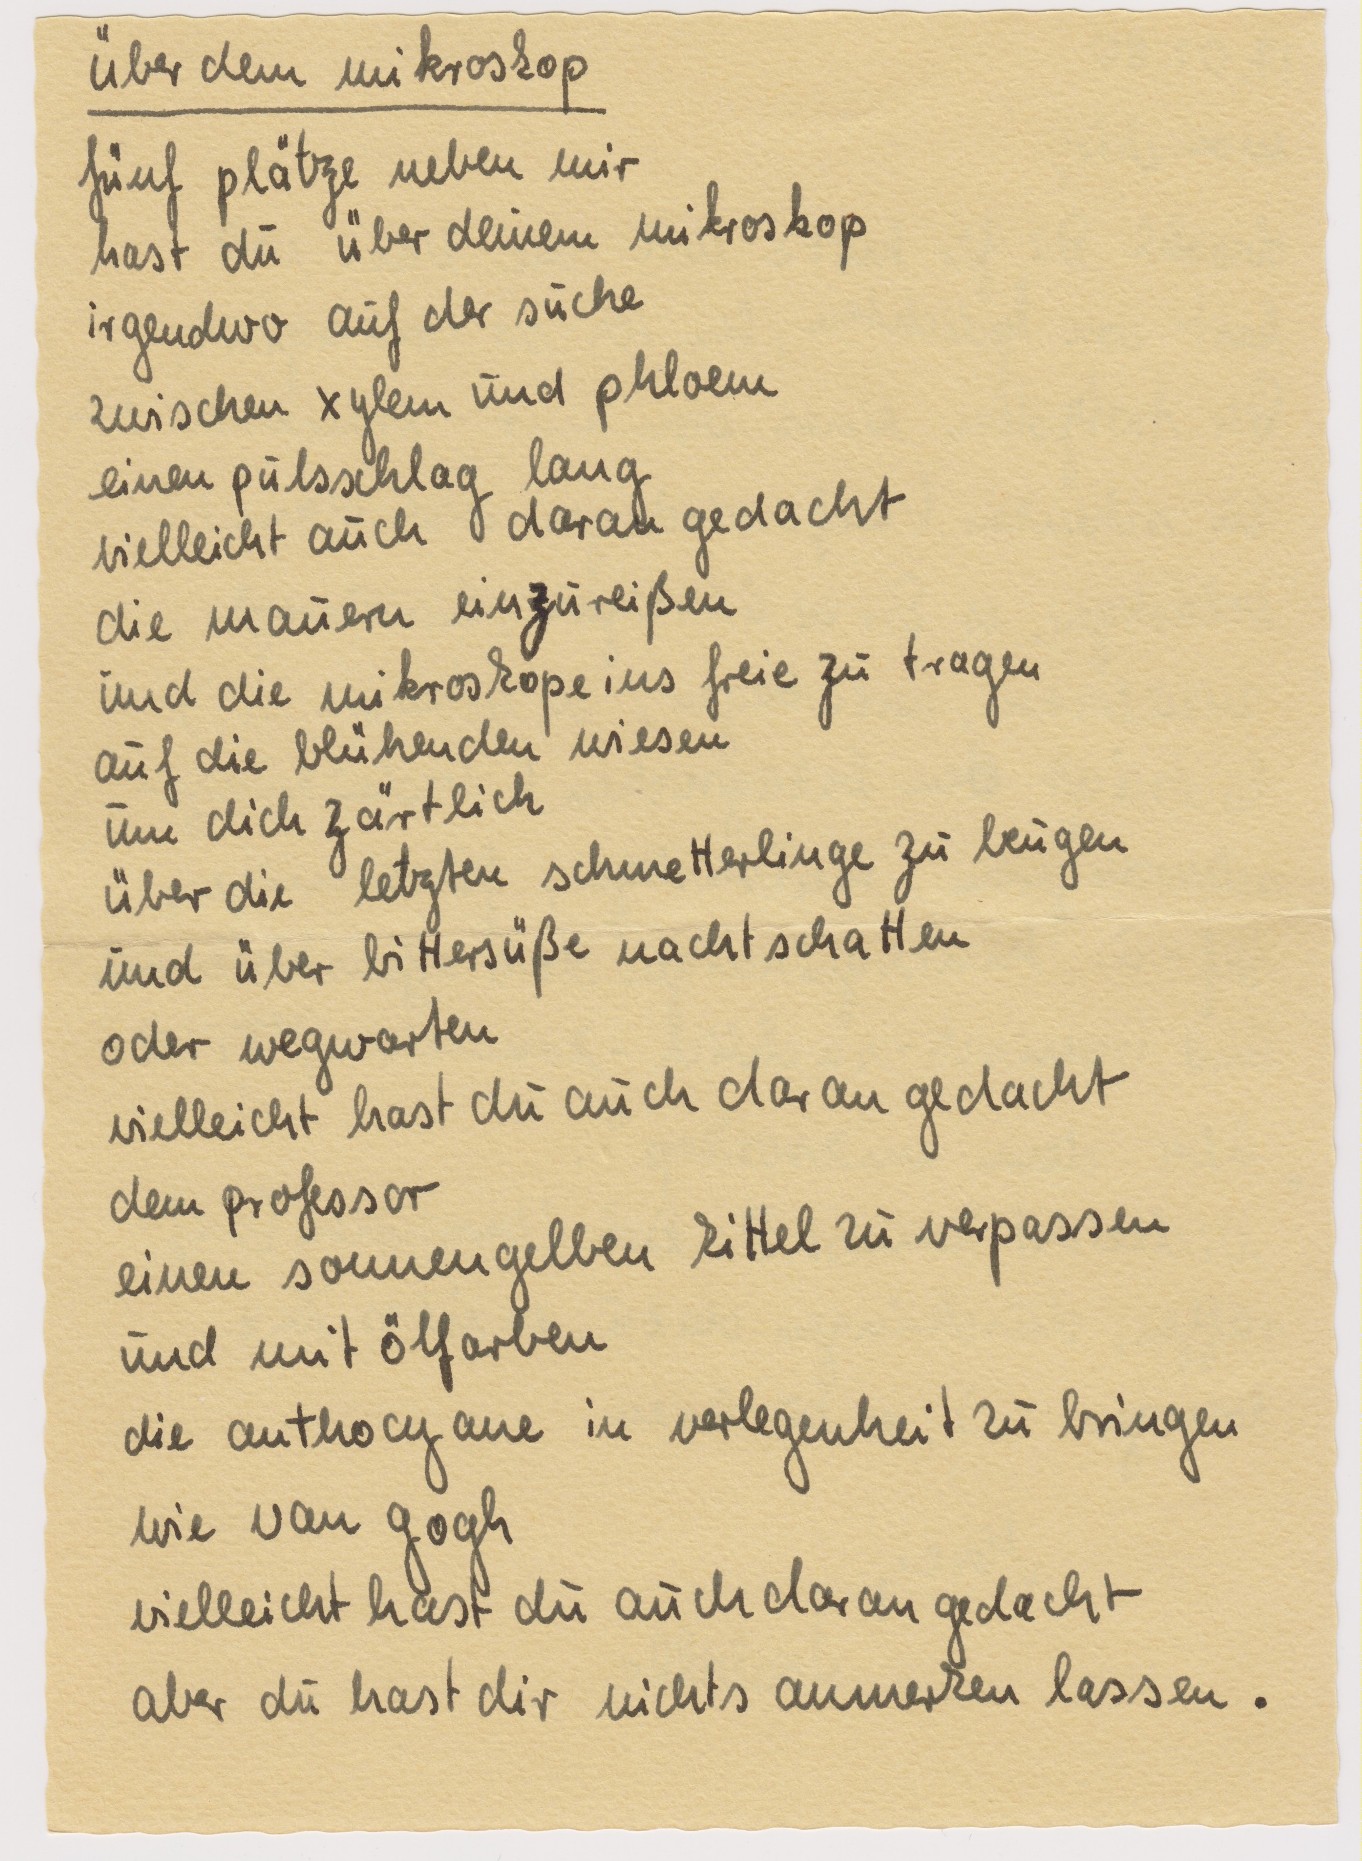 über dem mikroskop
fünf plätze neben mir
hast du über deinem mikroskop
irgendwo auf der suche
zwischen xylem und phloem
einen pulsschlag lang
vielleicht auch daran gedacht
die mauern einzureißen
und die mikroskope ins freie zu tragen
auf die blühenden wiesen
um dich zärtlich
über die letzten schmetterlinge zu beugen
und über bittersüße nachtschatten
oder wegwarten
vielleicht hast du auch daran gedacht
dem professor
einen sonnengelben kittel zu verpassen
und mit ölfarben
die anthocyane in verlegenheit zu bringen
wie van gogh
vielleicht hast du auch daran gedacht
aber du hast dir nichts anmerken lassen.